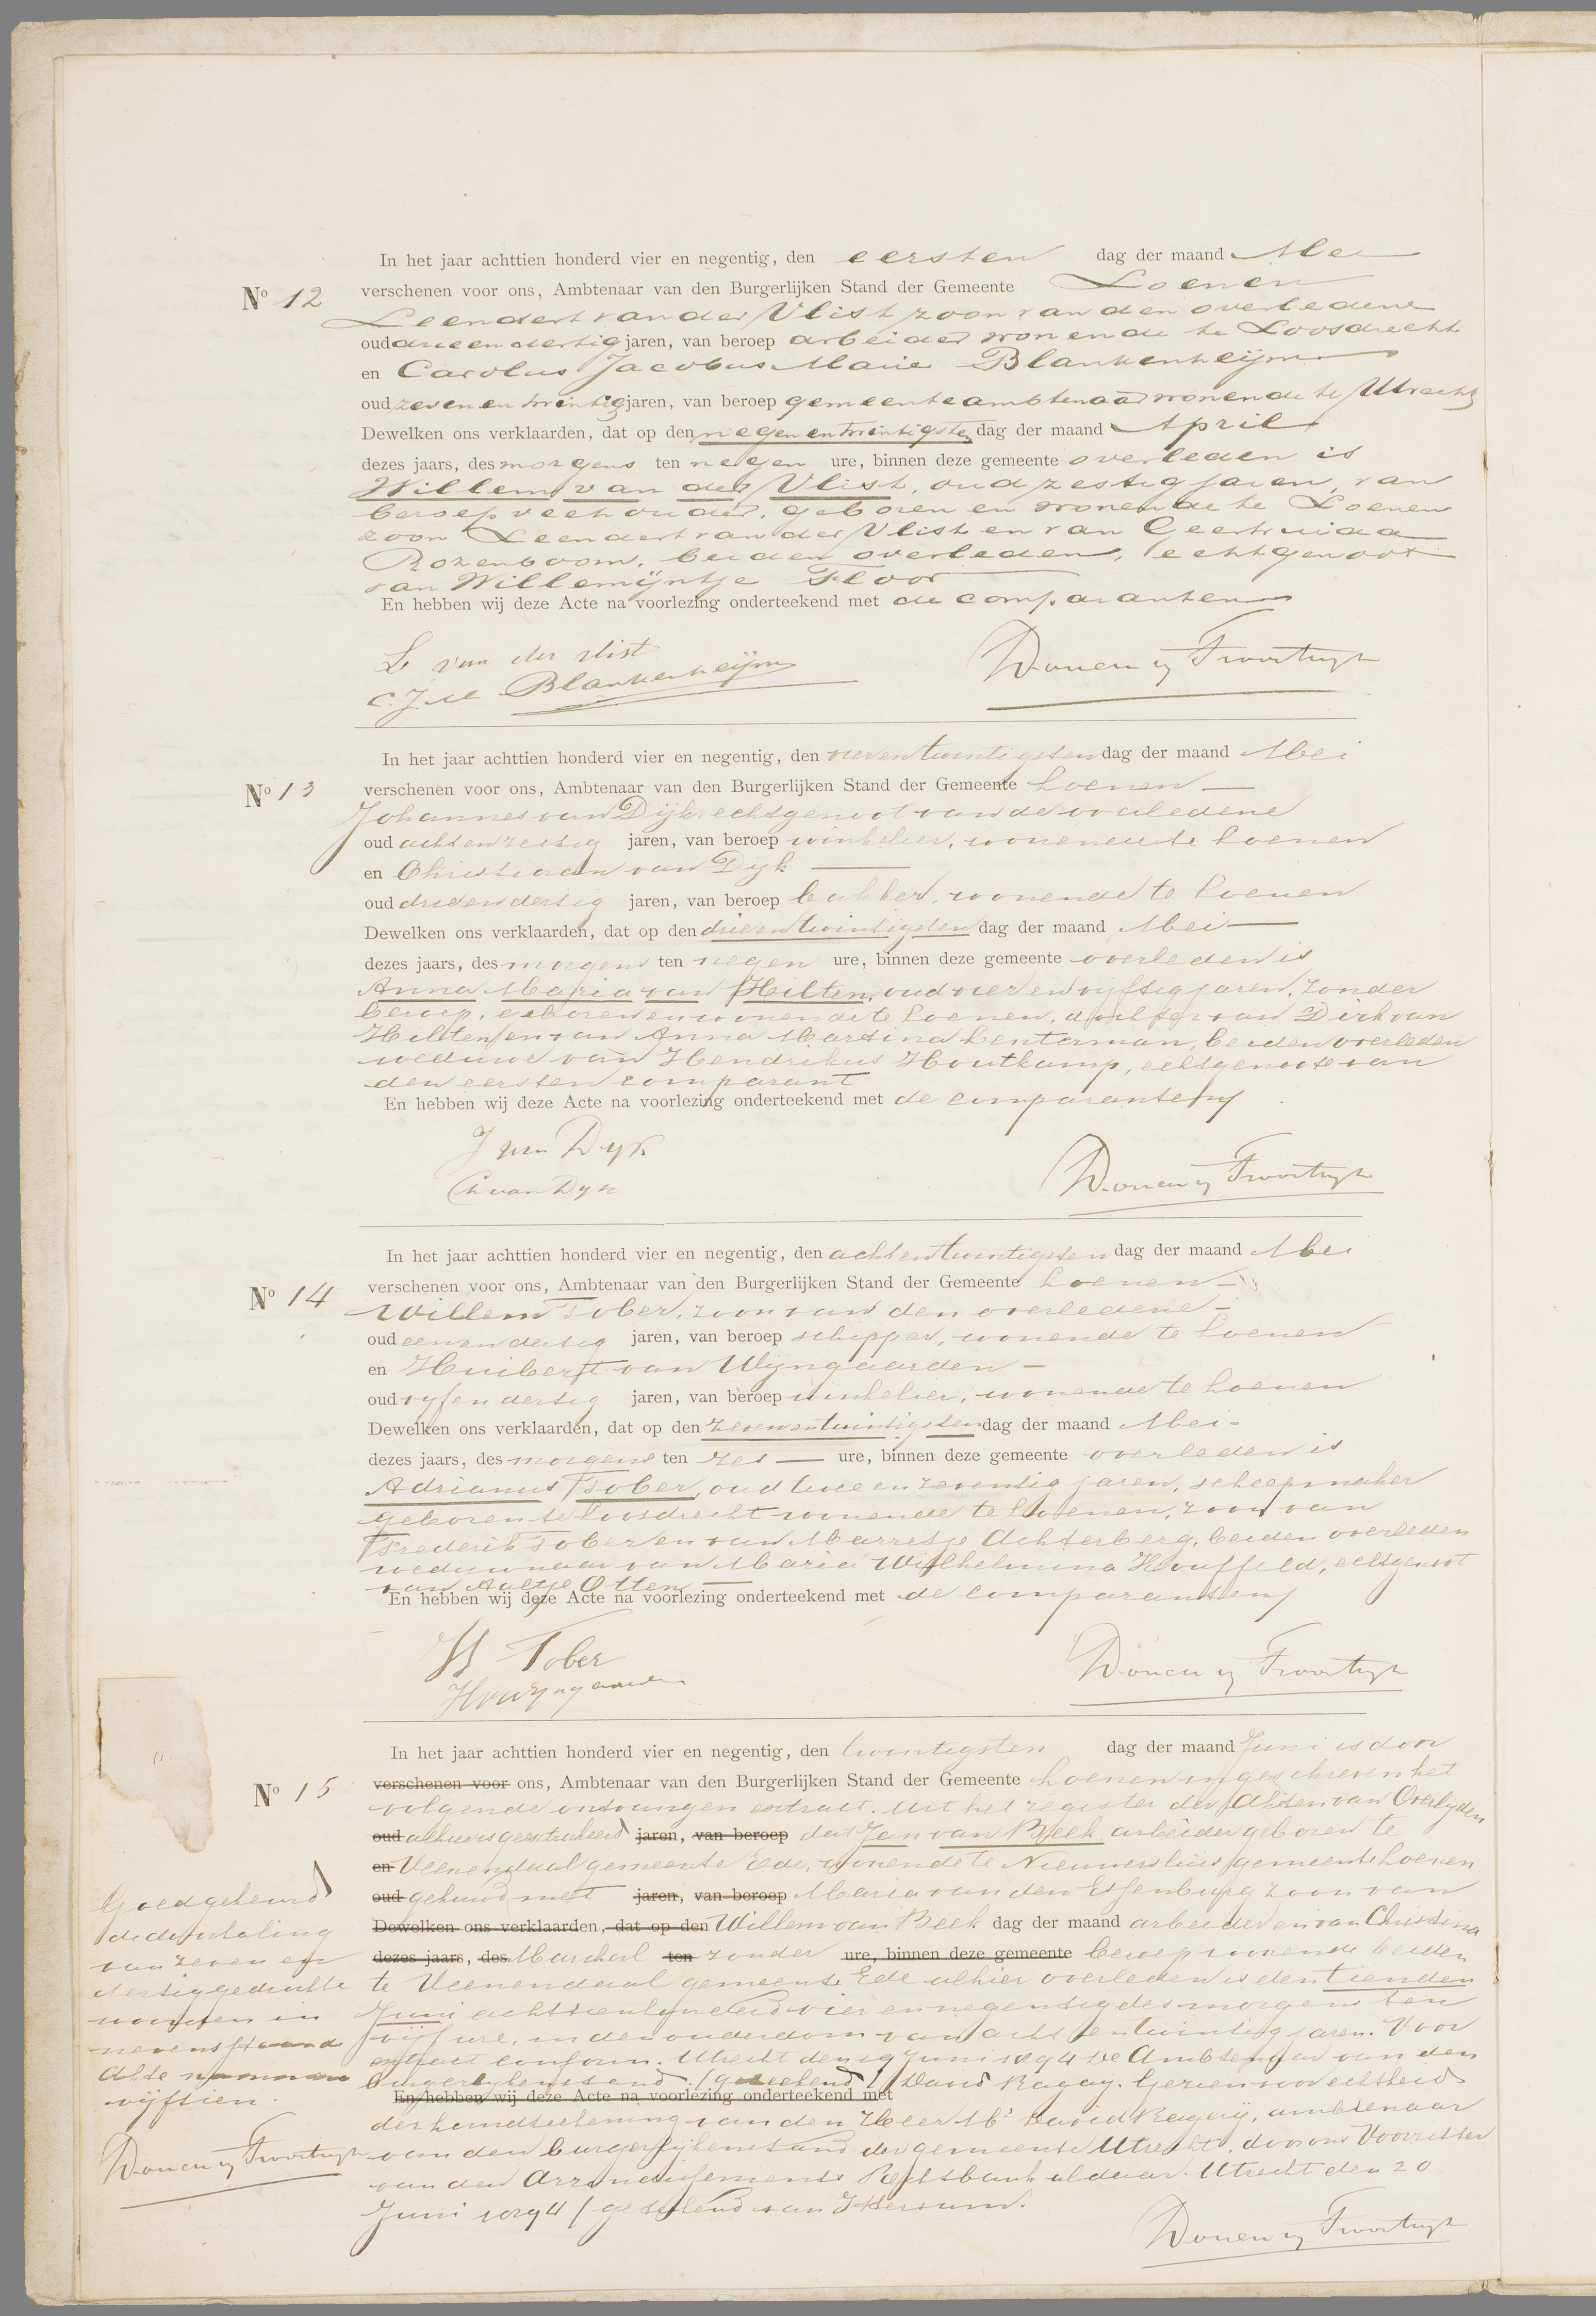 In het jaar achttien honderd vier en negentig, den eersten dag der maand Mei
No 12 verschenen voor ons, Ambtenaar van den Burgerlijken Stand der Gemeente Loenen
Leendert van der Vlist, zoon van den overledene
oud drieendertig jaren, van beroep arbeider wonende te Loosdrecht
en Carolus Jacobus Marie Blankenheijm
oud zevenentwintig jaren, van beroep gemeenteambtenaar wonende te Utrecht
Dewelken ons verklaarden, dat op den negenentwintigsten dag der maand April
dezes jaars, des morgens ten negen ure, binnen deze gemeente overleden is
Willem van der Vlist, oud zestig jaren, van
beroep veehouder, geboren en wonende te Loenen
zoon Leendert van der Vlist en van Geertruida
Rozenboom, beiden overleden, echtgenoot
van Willemijntje Floor
En hebben wij deze Acte na voorlezing onderteekend met de comparanten
L van der Vlist
C. J. M Blankenheijm
In het jaar achttien honderd vier en negentig, den vierentwintigsten dag der maand Mei
No 13 verschenen voor ons, Ambtenaar van den Burgerlijken Stand der Gemeente Loenen
Johannes van Dijk echtgenoot van de overledene
oud achtenzestig jaren, van beroep winkelier, wonende te Loenen
en Christiaan van Dyk
oud drieendertig jaren, van beroep bakker, wonende te Loenen
Dewelken ons verklaarden, dat op den drieentwintigsten dag der maand Mei
dezes jaars, des morgens ten negen ure, binnen deze gemeente overleden is
Anna Maria van Hilten, oud vierenvijftig jaren, zonder
beroep, geboren en wonende te Loenen, dochter van Dirk van
Hilten en van Anna Martina Lenterman, beiden overleden
weduwe van Hendrikus Houtkamp, echtgenoote van
den eersten comparant
En hebben wij deze Acte na voorlezing onderteekend met de comparanten
J van Dyk
Ch van Dyk
In het jaar achttien honderd vier en negentig, den achtentwintigsten dag der maand Mei
No 14 verschenen voor ons, Ambtenaar van den Burgerlijken Stand der Gemeente Loenen
Willem Tober, zoon van den overledene
oud eenendertig jaren, van beroep schipper, wonende te Loenen
en Huibert van Wijngaarden
oud vyfendertig jaren, van beroep winkelier, wonende te Loenen
Dewelken ons verklaarden, dat op den zevenentwintigsten dag der maand Mei
dezes jaars, des morgens ten zes ure, binnen deze gemeente overleden is
Adrianus Tober, oud tweeenzeventig jaren, scheepmaker
geboren te Loosdrecht wonende te Loenen, zoon van
Frederik Tober en van Marretje Achterberg, beiden overleden
weduwnaar van Maria Wilhelmina Houffeld, echtgenoot
van Aaltje Otten
En hebben wij deze Acte na voorlezing onderteekend met de comparanten
W Tober
In het jaar achttien honderd vier en negentig, den twintigsten dag der maand Juni is door
No 15 verschenen voor ons, Ambtenaar van den Burgerlijken Stand der Gemeente Loenen ingeschreven het
volgende ontvangen extract. Uit het register der Akten van Overlyden
oud alhier is geextraheerd jaren, van beroep dat Jan van Beek arbeider geboren te
en Veenendaal gemeente Ede, wonende te Nieuwersluis gemeente Loenen
oud gehuwd met jaren, van beroep Maria van den Essenburg zoon van
Dewelken ons verklaarden, dat op den Willem van Beek dag der maand arbeider en van Christina
dezes jaars, des Marchal ten zonder ure, binnen deze gemeente beroep wonende beiden
te Veenendaal gemeente Ede alhier overleden is den tienden
Juni achttienhonderd vier en negentig des morgens ten
vijf ure, in den ouderdom van acht en twintig jaren. Voor
extract conform. Utrecht den 19 Juni 1894 De Ambtenaar van den
burgerlykenstand. /geteekend/ David Ragay. Gezien voor echtheid
En hebben wij deze Acte na voorlezing onderteekend met
der handteekening van den Heer Mr David Ragay, ambtenaar
van den burgerlijkenstand der gemeente Utrecht, door ons Voorzitter
van den Arrondissements Rechtbank aldaar. Utrecht den 20
Juni 1894 / geteekend van
Goedgekeurd
de doorhaling
van zeven en
dertig gedrukte
woorden in
nevenstaande
Akte nummer
vijftien.